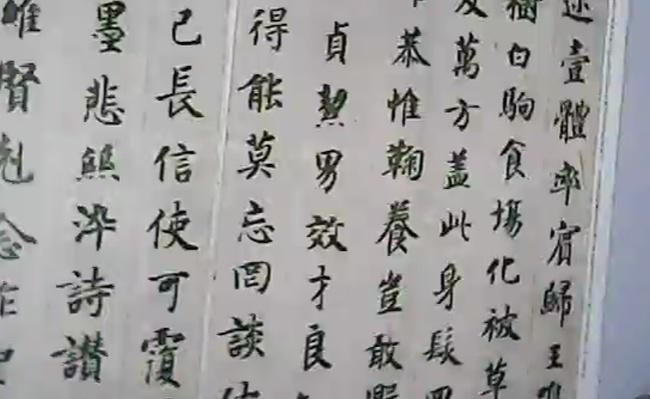 迩壹體率賓歸王
樹白駒食場化被草
及萬方蓋此身髮四
恭惟鞠養豈敢毀
貞絜男效才良
得能莫忘罔談
己長信使可覆
墨悲絲染詩讚
維賢剋念作